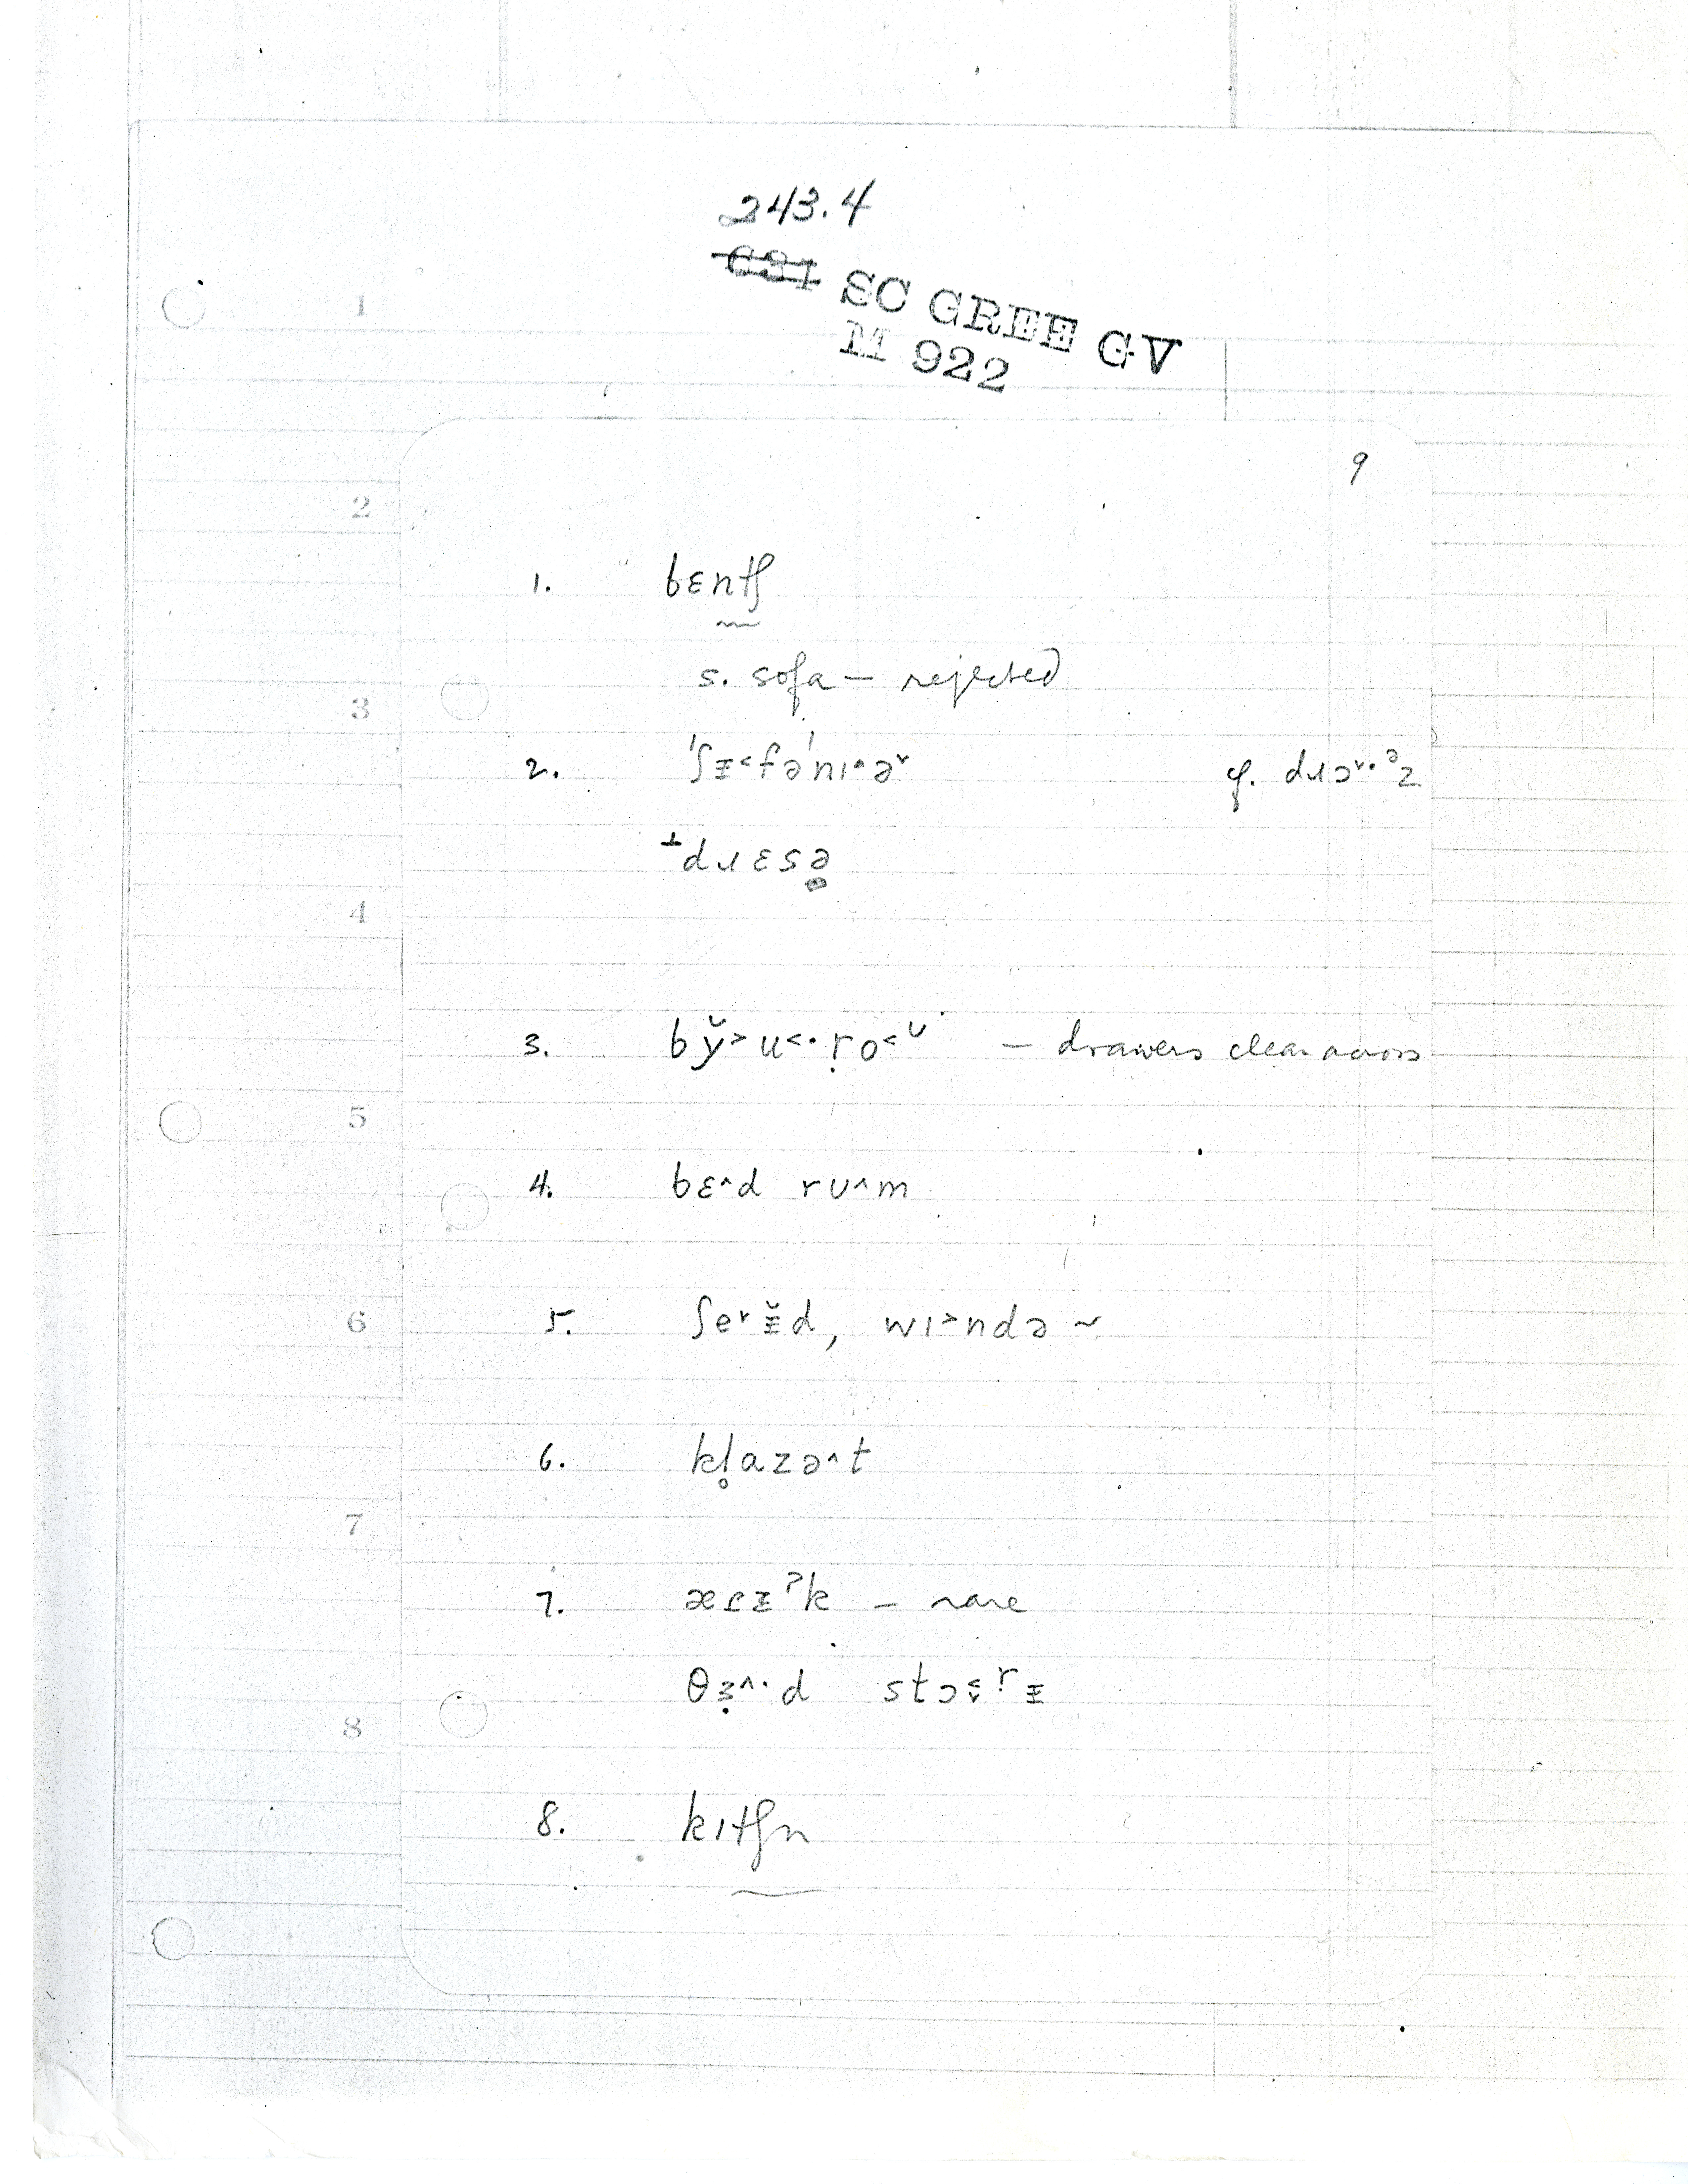 243.4
C31 SC GREE GV
M 922
9
1
2
3
4
5
6
7
8
1. bɛntʃ
s. sofa – rejected
2. ˈʃᵻ˂fəˈnɪ·ə˅ cf. dɹɔ˅·ᵊz
⊥dɹɛsə̣
3. by̆˃u˂·ṛo˂ᶷ – drawers clear across
4. bɛ˄d rʊ˄m
5. ʃe˅ᵻ̆d, wɪ˃ndə ~
6. kl̥azə˄t
7. æɾᵻˀk – rare
θɜ̣˄·d stɔ˂˅ʳᵻ
8. kɪtʃn